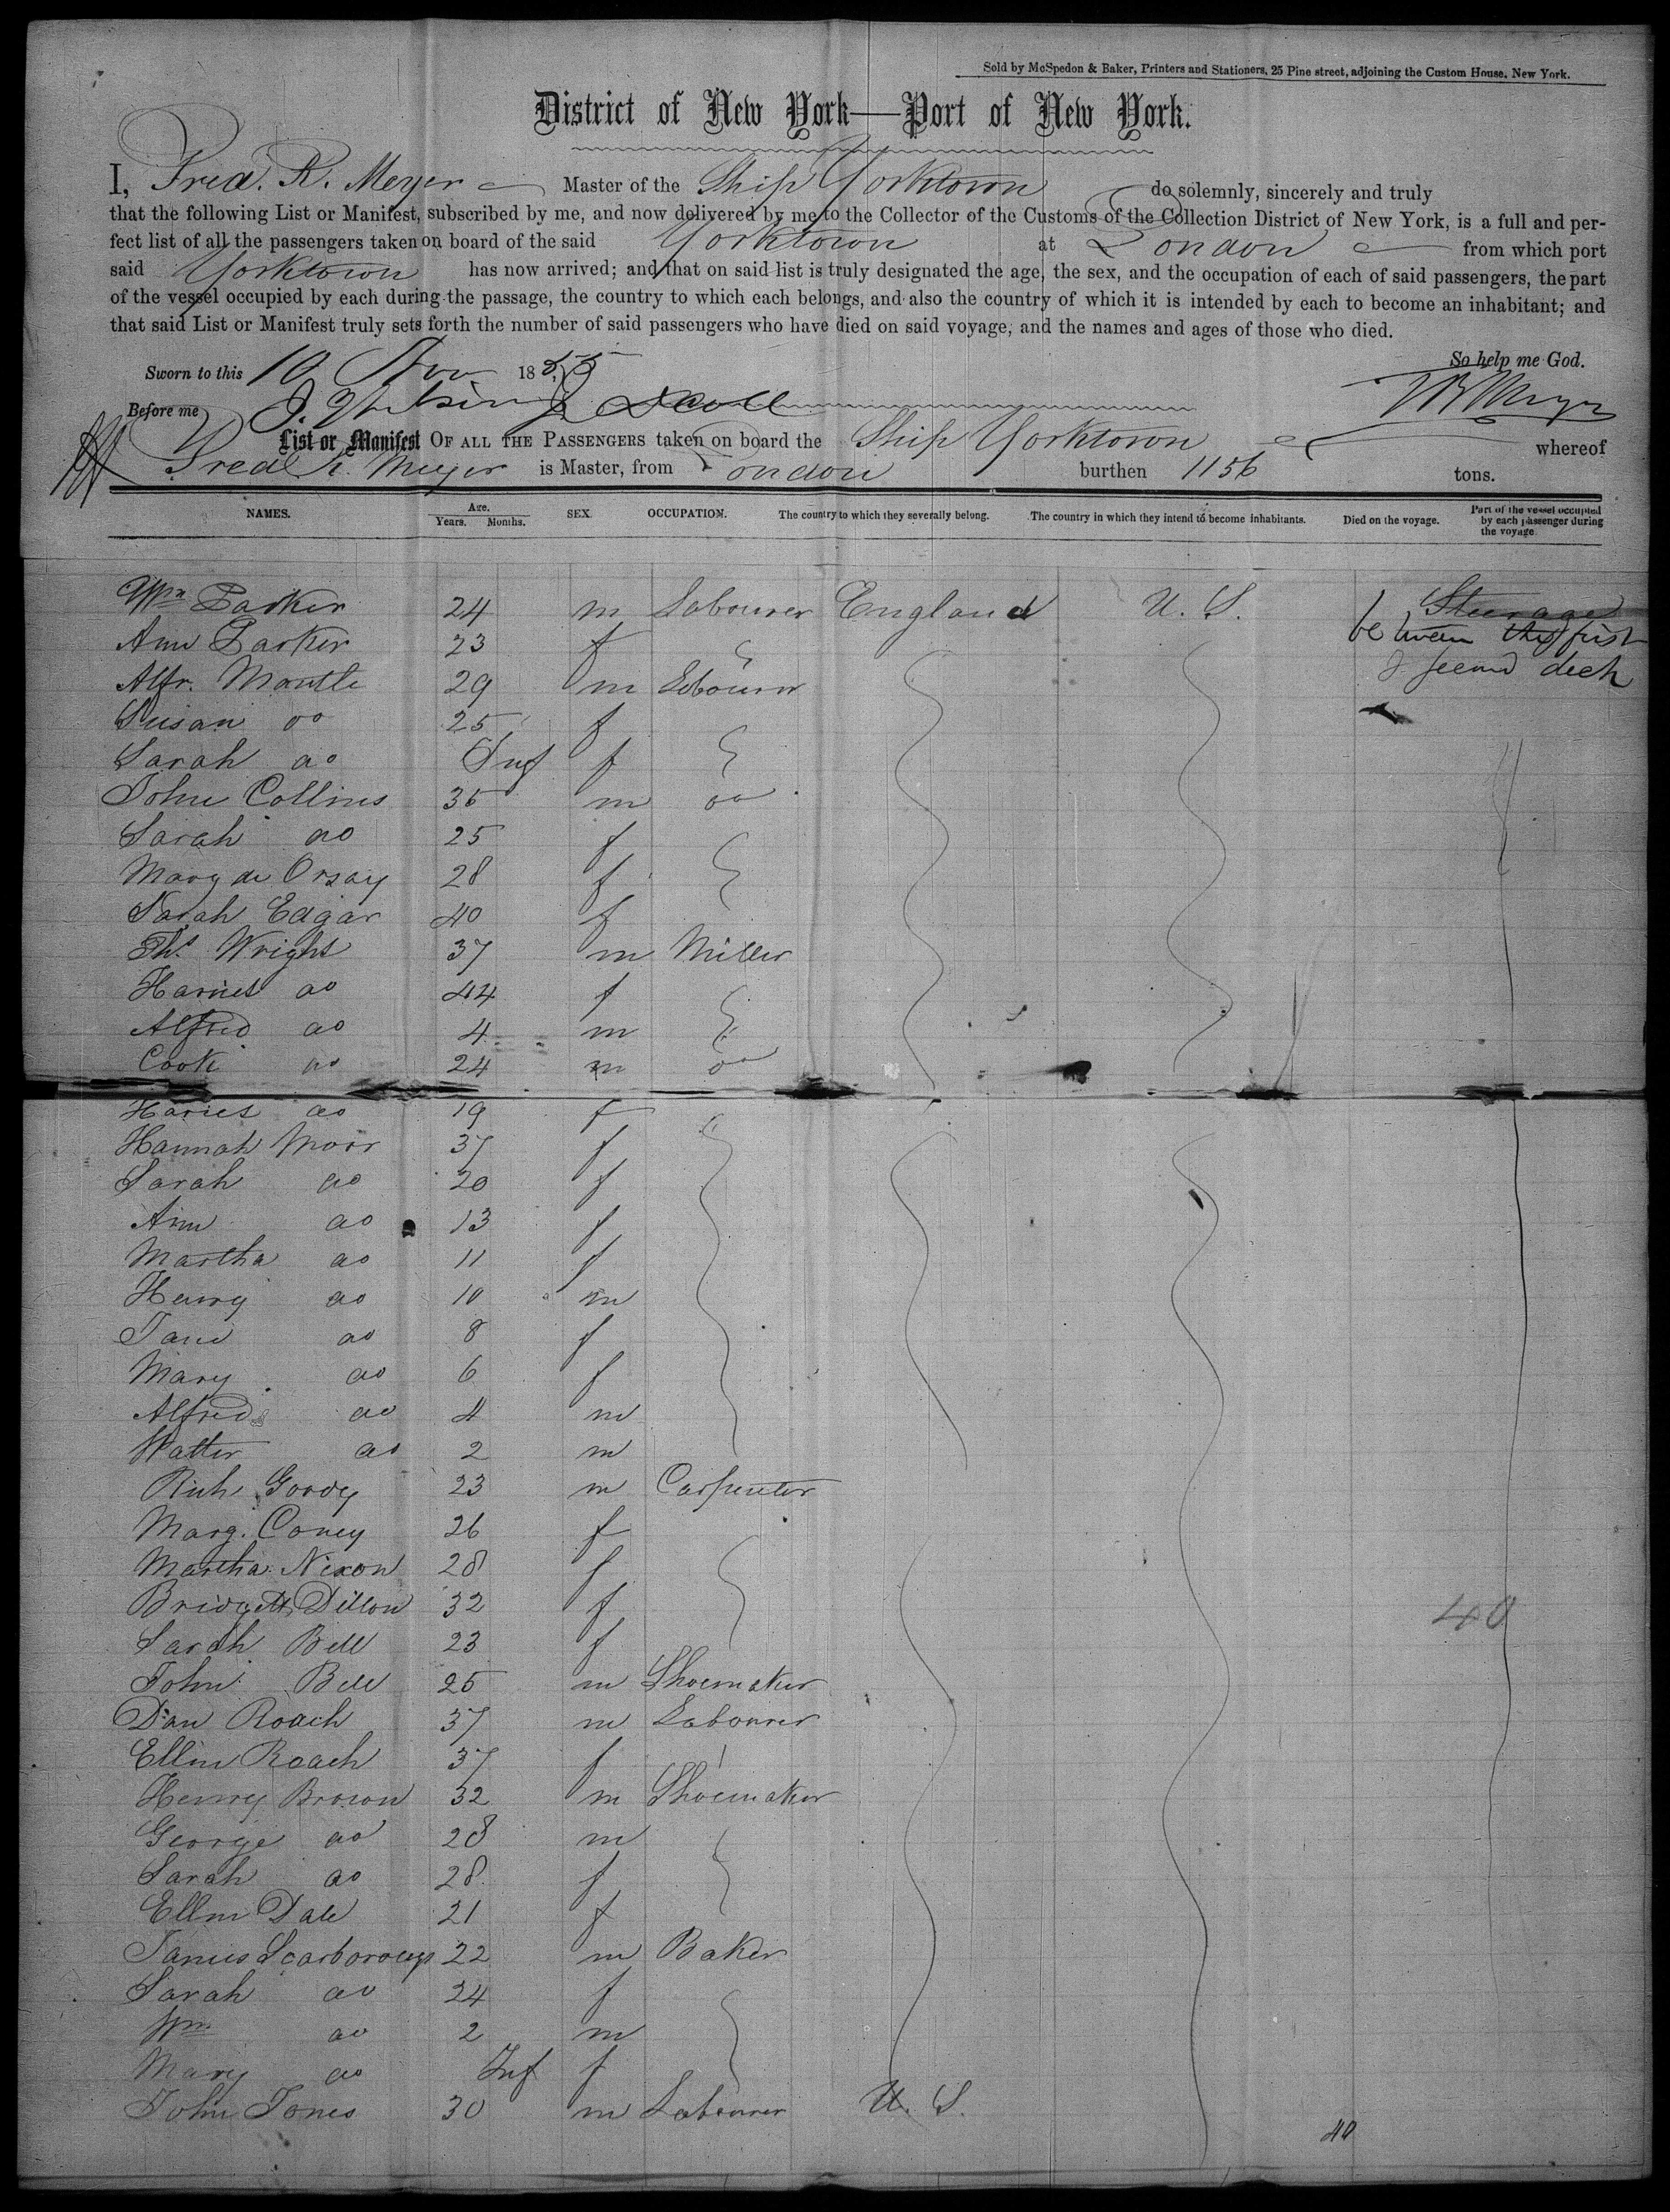 Sold by McSpedon & Baker, Printers and Stationers, 25 Pine street, adjoining the Custom House, New York.
District of New York—Port of New York.
I, Fred. R. Meyer Master of the Ship Yorktown do solemnly, sincerely and truly
that the following List or Manifest, subscribed by me, and now delivered by me to the Collector of the Customs of the Collection District of New York, is a full and per-
fect list of all the passengers taken on board of the said Yorktown at London from which port
said Yorktown has now arrived; and that on said list is truly designated the age, the sex, and the occupation of each of said passengers, the part
of the vessel occupied by each during the passage, the country to which each belongs, and also the country of which it is intended by each to become an inhabitant; and
that said List or Manifest truly sets forth the number of said passengers who have died on said voyage, and the names and ages of those who died.
So help me God.
Sworn to this 19 Nov 1855
Before me
List or Manifest OF ALL THE PASSENGERS taken on board the Ship Yorktown whereof
Fred R. Meyer is Master, from London burthen 1156 tons.
NAMES. Age. Years. Months. SEX. OCCUPATION. The country to which they severally belong. The country in which they intend to become inhabitants. Died on the voyage. Part of the vessel occupied by each passenger during the voyage
Wm Parker 24 m Labourer England U. S. Steerage
between the first
Ann Parker 23 f
& second deck
Alfr. Mantle 29 m Labourer
Susan do 25 f
Sarah do Inf f
John Collins 35 m do
Sarah do 25 f
Mary de Orsay 28 f
Sarah Edgar 40 f
Ths. Wright 37 m Miller
Harriet do 44 f
Alfred do 4 m
Cook do 24 m do
Harriet do 19 f
Hannah Moor 37 f
Sarah do 20 f
Ann do 13 f
Martha do 11 f
Henry do 10 m
Jane do 8 f
Mary do 6 f
Alfred do 4 m
Walter do 2 m
Rich Goody 23 m Carpenter
Marg. Coney 26 f
Martha Nixon 28 f
Bridgett Dillon 32 f
40
Sarah Bell 23 f
John Bell 25 m Shoemaker
Dan Roach 37 m Labourer
Ellin Roach 37 f
Henry Brown 32 m Shoemaker
George do 28 m
Sarah do 28 f
Ellen Dale 21 f
James Scarborough 22 m Baker
Sarah do 24 f
Wm do 2 m
Mary do Inf f
John Jones 30 m Labourer U. S.
40